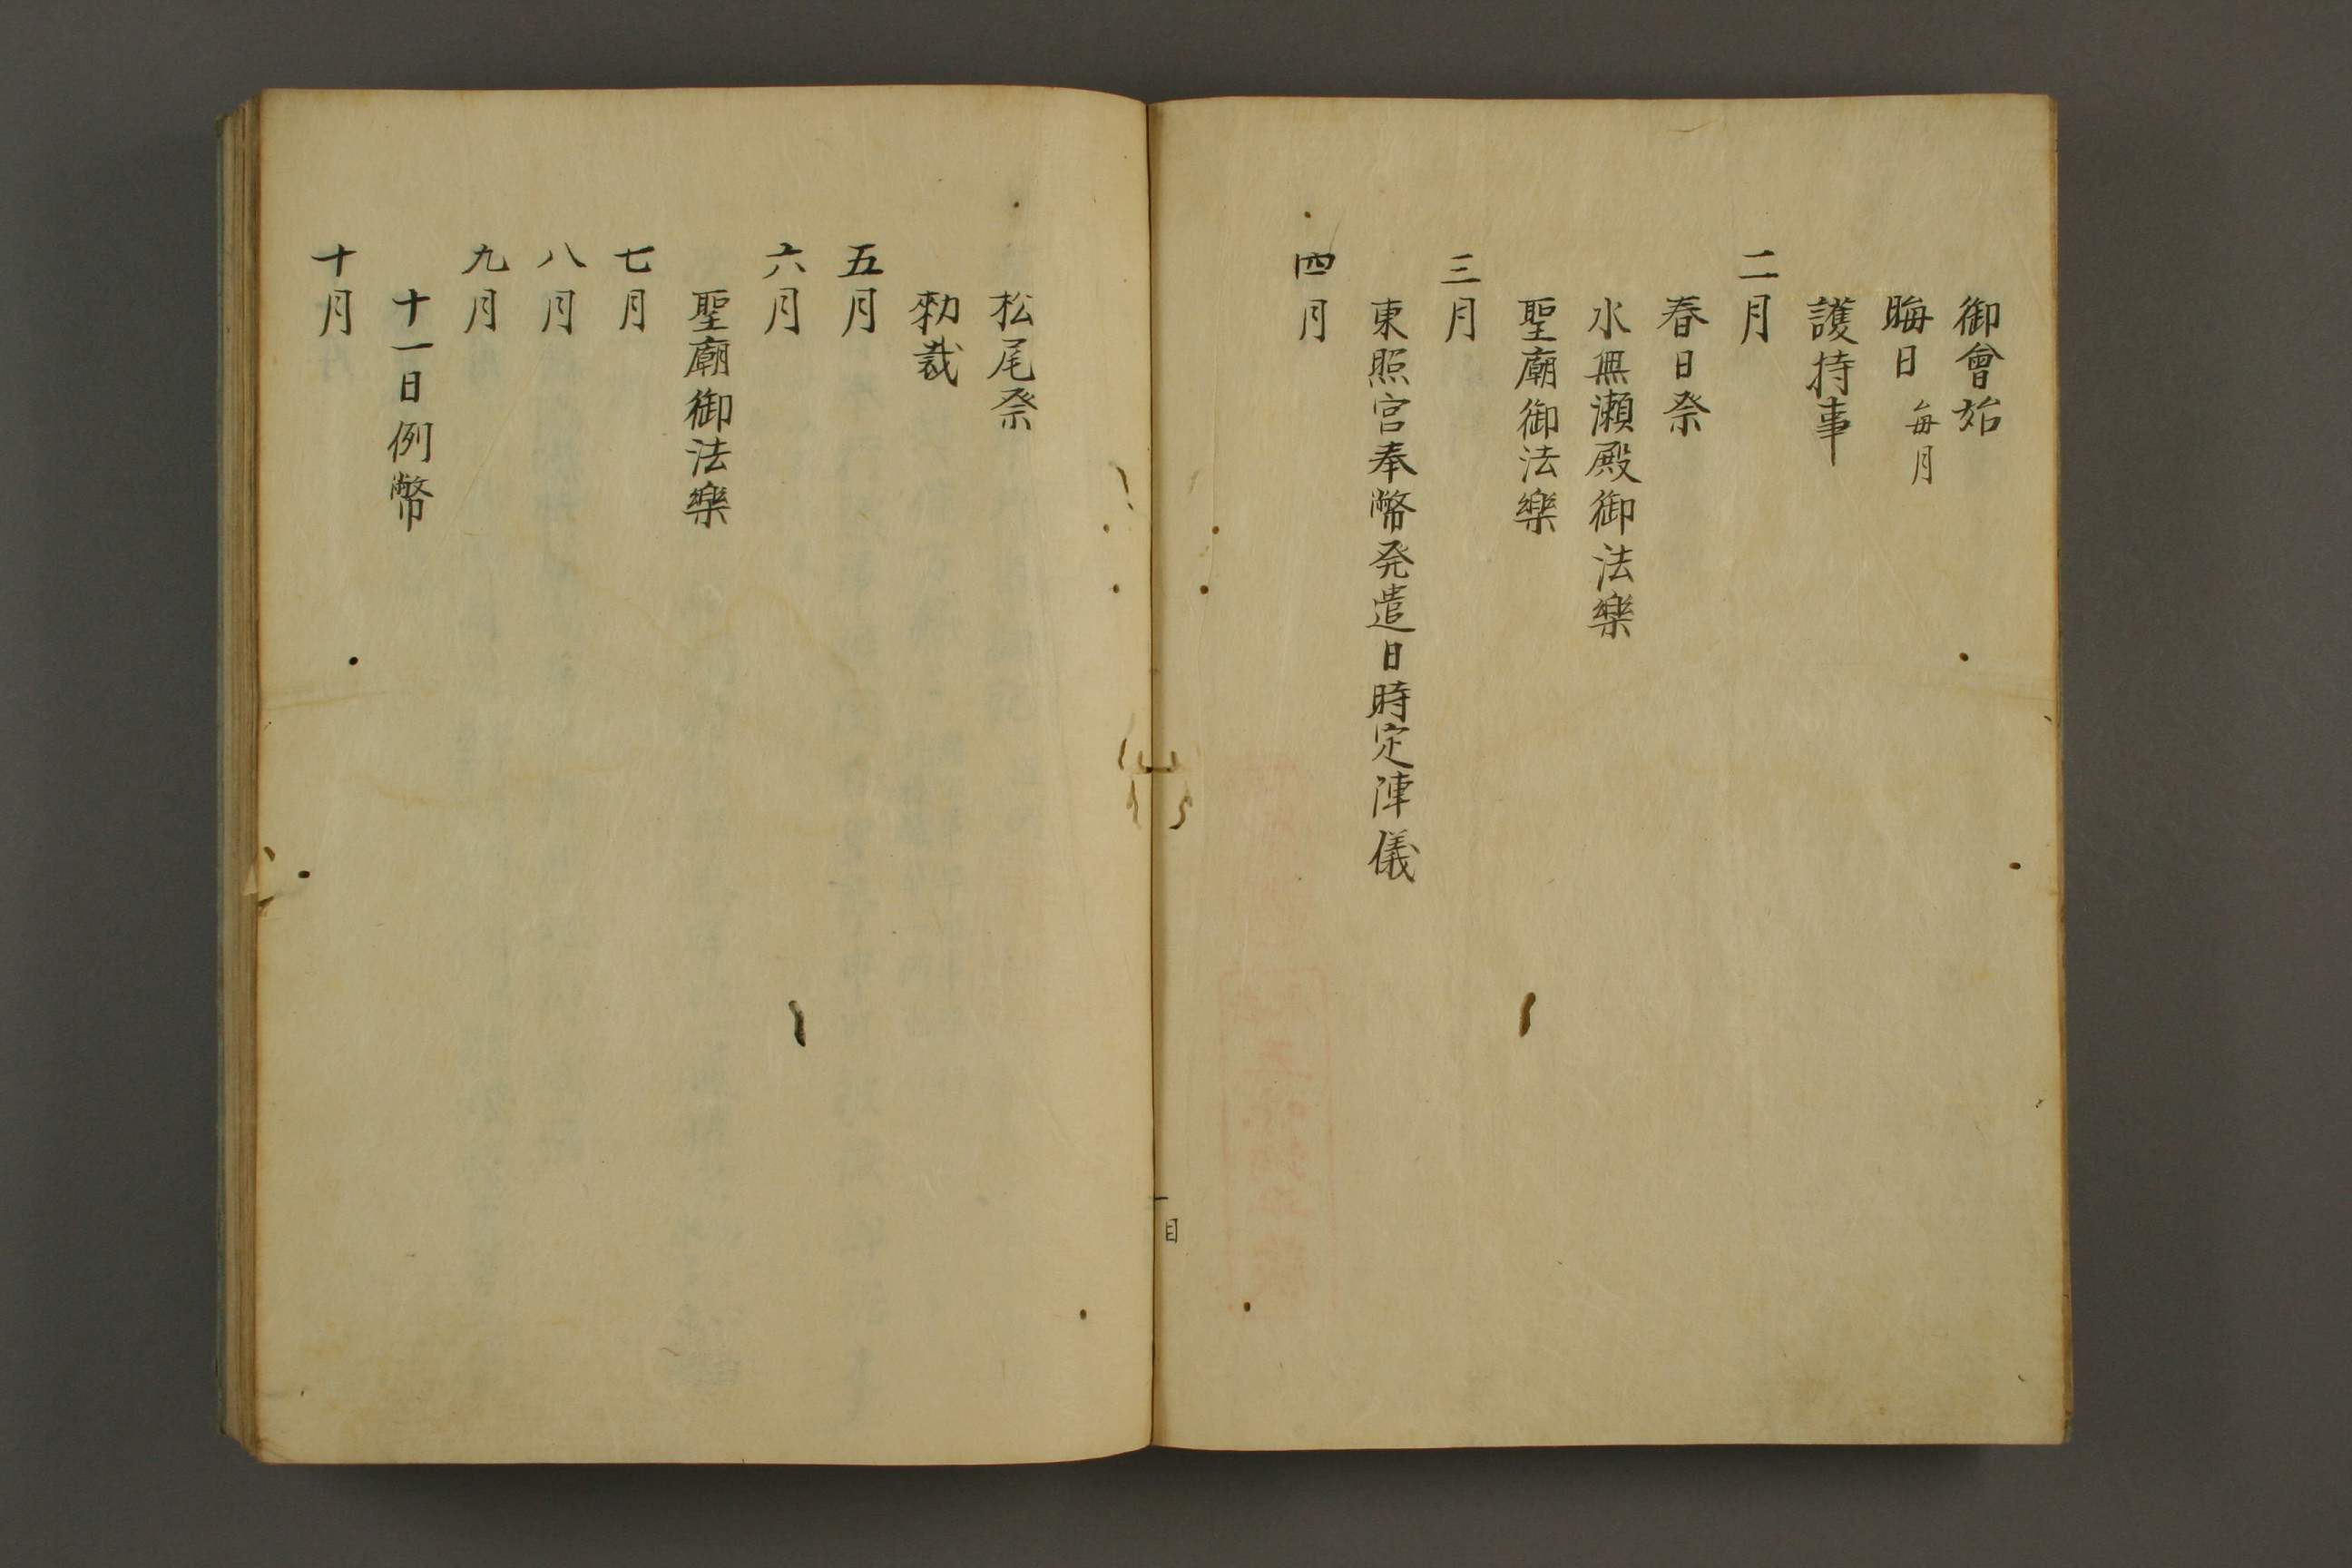 御會始
晦日 毎月
護持事
二月
春日祭
水無瀬殿御法樂
聖廟御法樂
三月
東照宮奉幣発遣日時定陣儀
四月
一目
松尾祭
勅裁
五月
六月
聖廟御法樂
七月
八月
九月
十一日例幣
十月